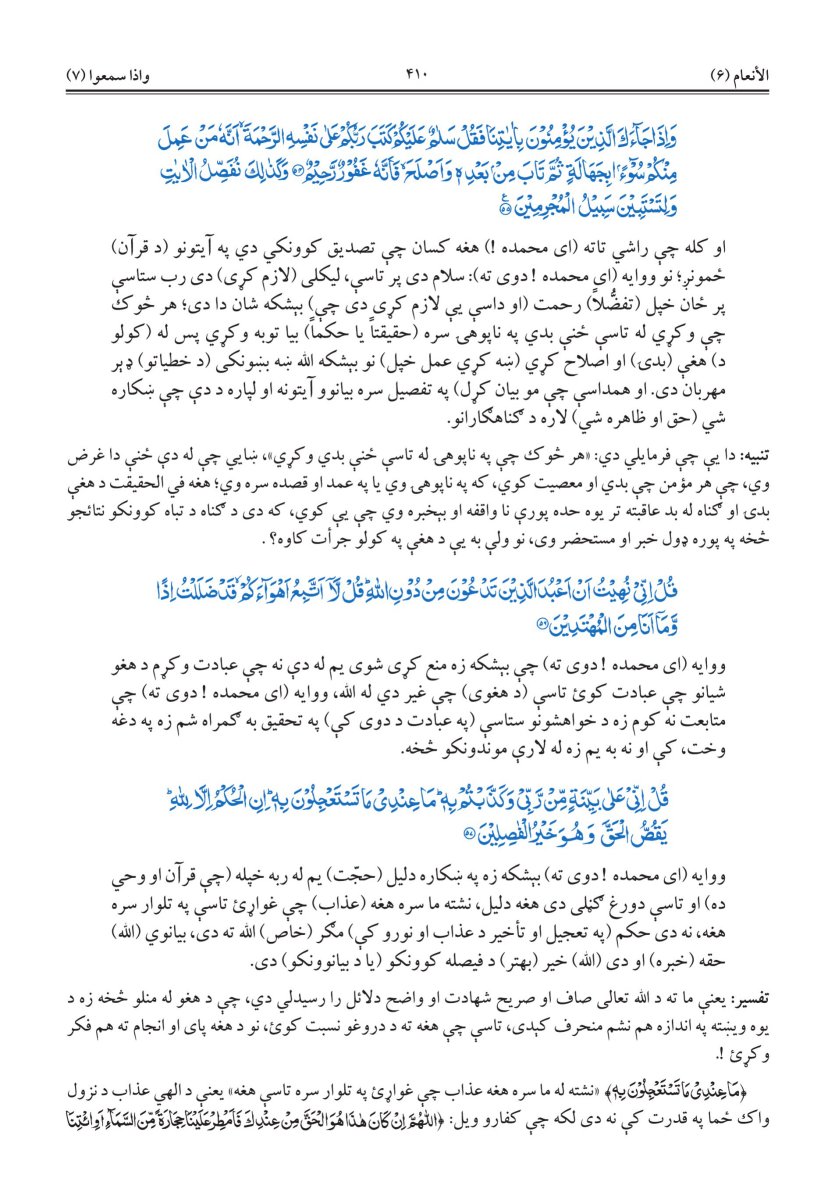 الأنعام (۶) ۴۱۰ واذا سمعوا (۷)
وَإِذَا جَاءَكَ الَّذِينَ يُؤْمِنُونَ بِاٰيٰتِنَا فَقُلْ سَلٰمٌ عَلَيْكُمْ كَتَبَ رَبُّكُمْ عَلٰى نَفْسِهِ الرَّحْمَةَ اَنَّهٗ مَنْ عَمِلَ
مِنْكُمْ سُوْٓءًۢا بِجَهَالَةٍ ثُمَّ تَابَ مِنْۢ بَعْدِهٖ وَاَصْلَحَ فَاَنَّهٗ غَفُوْرٌ رَّحِيْمٌ ﴿۵۴﴾ وَكَذٰلِكَ نُفَصِّلُ الْاٰيٰتِ
وَلِتَسْتَبِيْنَ سَبِيْلُ الْمُجْرِمِيْنَ ﴿۵۵﴾
او كله چې راشي تاته (اى محمده !) هغه كسان چې تصديق كوونكي دي په آيتونو (د قرآن)
ځمونږ؛ نو ووايه (اى محمده ! دوى ته): سلام دى پر تاسې، ليكلى (لازم كړى) دى رب ستاسې
پر ځان خپل (تفضُّلاً) رحمت (او داسې يې لازم كړى دى چې) بېشكه شان دا دى؛ هر څوك
چې وكړي له تاسې ځنې بدي په ناپوهۍ سره (حقيقتاً يا حكماً) بيا توبه وكړي پس له (كولو
د) هغې (بدۍ) او اصلاح كړي (ښه كړي عمل خپل) نو بېشكه الله ښه بښونكى (د خطياتو) ډېر
مهربان دى. او همداسې چې مو بيان كړل) په تفصيل سره بيانوو آيتونه او لپاره د دې چې ښكاره
شي (حق او ظاهره شي) لاره د ګناهګارانو.
تنبيه: دا يې چې فرمايلي دي: «هر څوك چې په ناپوهۍ له تاسې ځنې بدي وكړي»، ښايي چې له دې ځنې دا غرض
وي، چې هر مؤمن چې بدي او معصيت كوي، كه په ناپوهۍ وي يا په عمد او قصده سره وي؛ هغه في الحقيقت د هغې
بدۍ او ګناه له بد عاقبته تر يوه حده پورې نا واقفه او بېخبره وي چې يې كوي، كه دى د ګناه د تباه كوونكو نتائجو
څخه په پوره ډول خبر او مستحضر وى، نو ولې به يې د هغې په كولو جرأت كاوه؟ .
قُلْ اِنِّيْ نُهِيْتُ اَنْ اَعْبُدَ الَّذِيْنَ تَدْعُوْنَ مِنْ دُوْنِ اللّٰهِ قُلْ لَّآ اَتَّبِعُ اَهْوَآءَكُمْ قَدْ ضَلَلْتُ اِذًا
وَّمَآ اَنَا مِنَ الْمُهْتَدِيْنَ ﴿۵۶﴾
ووايه (اى محمده ! دوى ته) چې بېشكه زه منع كړى شوى يم له دې نه چې عبادت وكړم د هغو
شيانو چې عبادت كوئ تاسې (د هغوى) چې غير دي له الله، ووايه (اى محمده ! دوى ته) چې
متابعت نه كوم زه د خواهشونو ستاسې (په عبادت د دوى كې) په تحقيق به ګمراه شم زه په دغه
وخت، كې او نه به يم زه له لارې موندونكو څخه.
قُلْ اِنِّيْ عَلٰى بَيِّنَةٍ مِّنْ رَّبِّيْ وَكَذَّبْتُمْ بِهٖ مَا عِنْدِيْ مَا تَسْتَعْجِلُوْنَ بِهٖ اِنِ الْحُكْمُ اِلَّا لِلّٰهِ
يَقُصُّ الْحَقَّ وَهُوَ خَيْرُ الْفٰصِلِيْنَ ﴿۵۷﴾
ووايه (اى محمده ! دوى ته) بېشكه زه په ښكاره دليل (حجّت) يم له ربه خپله (چې قرآن او وحي
ده) او تاسې دورغ ګڼلى دى هغه دليل، نشته ما سره هغه (عذاب) چې غواړئ تاسې په تلوار سره
هغه، نه دى حكم (په تعجيل او تأخير د عذاب او نورو كې) مګر (خاص) الله ته دى، بيانوي (الله)
حقه (خبره) او دى (الله) خير (بهتر) د فيصله كوونكو (يا د بيانوونكو) دى.
تفسير: يعنې ما ته د الله تعالى صاف او صريح شهادت او واضح دلائل را رسيدلي دي، چې د هغو له منلو څخه زه د
يوه وېښته په اندازه هم نشم منحرف كېدى، تاسې چې هغه ته د دروغو نسبت كوئ، نو د هغه پاى او انجام ته هم فكر
وكړئ !.
﴿مَا عِنْدِيْ مَا تَسْتَعْجِلُوْنَ بِهٖ﴾ «نشته له ما سره هغه عذاب چې غواړئ په تلوار سره تاسې هغه» يعنې د الهي عذاب د نزول
واك ځما په قدرت كې نه دى لكه چې كفارو ويل: ﴿اللّٰهُمَّ اِنْ كَانَ هٰذَا هُوَ الْحَقَّ مِنْ عِنْدِكَ فَاَمْطِرْ عَلَيْنَا حِجَارَةً مِّنَ السَّمَآءِ اَوِ ائْتِنَا